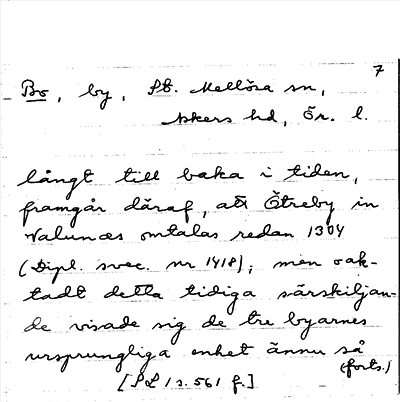 7
Bo, by, St. Mellösa sn,
Askers hd, Ör. l.
långt till baka i tiden,
framgår däraf, att Ötreby in
Walunæs omtalas redan 1304
(Dipl. svec. nr 1418); men oak-
tadt detta tidiga särskiljan-
de visade sig de tre byarnes
ursprungliga enhet ännu så
(forts.)
[SL 1 s. 561 f.]